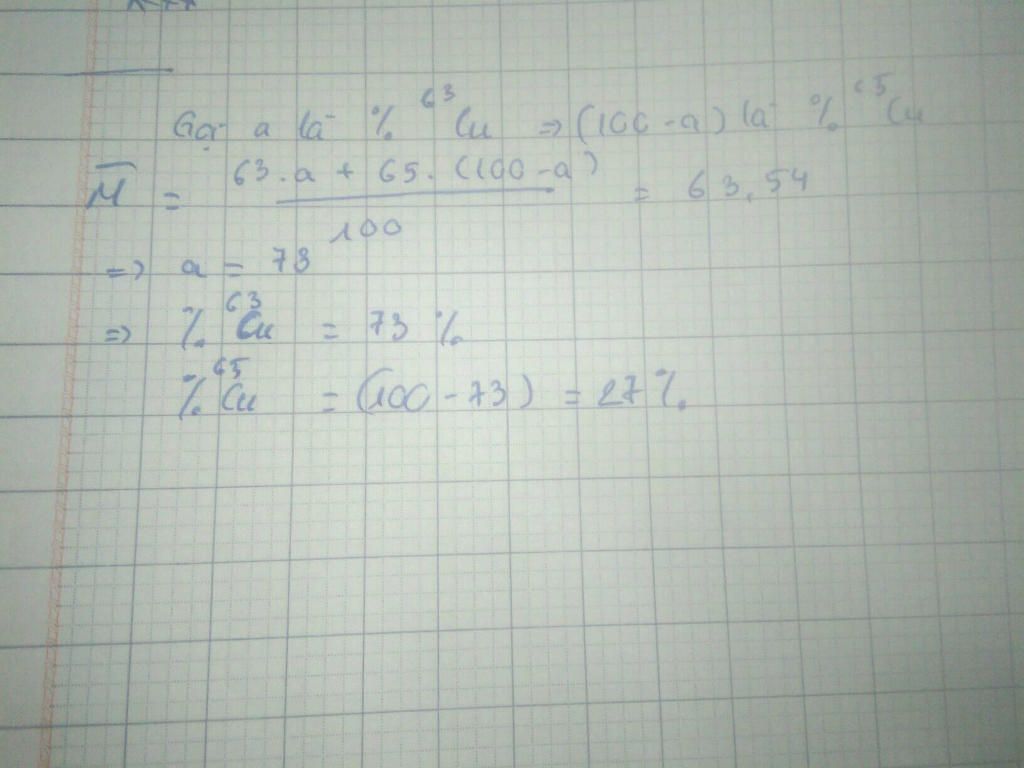 Gọi a là % ⁶³Cu => (100-a) là % ⁶⁵Cu
M̅ = (63.a + 65.(100-a))/100 = 63,54
=> a = 73
=> % ⁶³Cu = 73 %
% ⁶⁵Cu = (100-73) = 27%